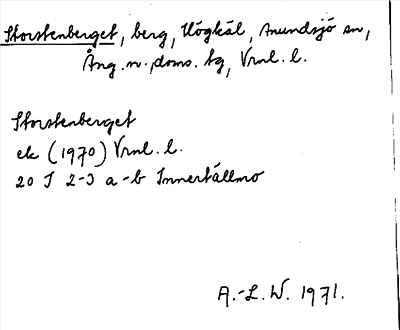 Storstenberget, berg, Högkäl, Anundsjö sn,
Ång. n. doms. tg, Vrnl. l.
Storstenberget
ek (1970) Vrnl. l.
20 J 2-3 a-b Innertällmo
A.-L. W. 1971.